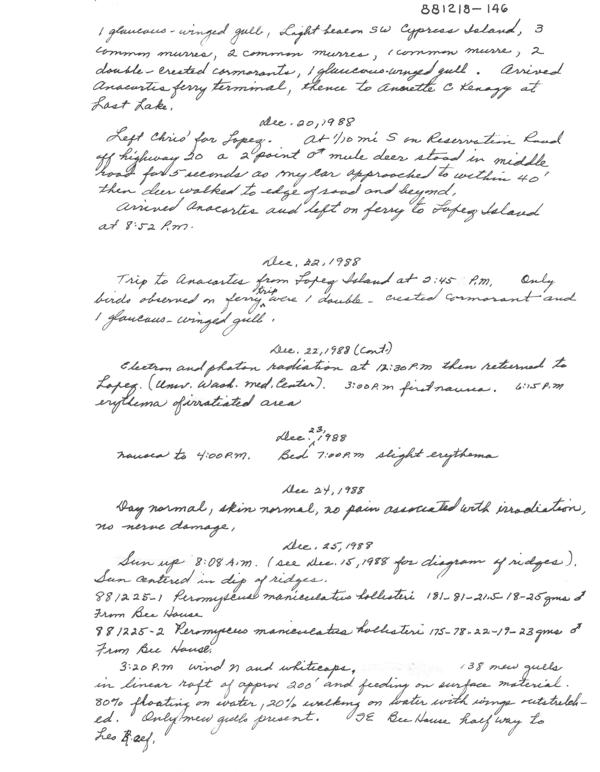 881218-146
1 glaucous-winged gull, Light beacon SW Cypress Island, 3
common murres, 2 common murres, 1 common murre, 2
double-crested cormorants, 1 glaucous-winged gull. Arrived
Anacortes ferry terminal, thence to Annette C Kenagy at
Lost Lake.
Dec. 20, 1988
Left Chris' for Lopez. At 1/10 mi S on Reservation Road
off highway 20 a 2 point ♂ mule deer stood in middle
road for 5 seconds as my car approached to within 40'
then deer walked to edge of road and beyond.
Arrived Anacortes and left on ferry to Lopez Island
at 8:52 P.m.
Dec. 22, 1988
Trip to Anacortes from Lopez Island at 2:45 P.M. Only
birds observed on ferry trip were 1 double-crested cormorant and
1 glaucous-winged gull.
Dec. 22, 1988 (Cont.)
Electron and photon radiation at 12:30 P.m then returned to
Lopez. (Univ. Wash. Med. Center). 3:00 P.m first nausea. 6:15 P.m
erythema of irratiated area
Dec. 23, 1988
nausea to 4:00 P.M. Bed 7:00 P.m slight erythema
Dec 24, 1988
Day normal, skin normal, no pain associated with irradiation,
no nerve damage,
Dec. 25, 1988
Sun up 8:08 A.m. (see Dec. 15, 1988 for diagram of ridges).
Sun centered in dip of ridges.
881225-1 Peromyscus maniculatus hollisteri 181-81-21.5-18-25 gms ♂
From Bee House
881225-2 Peromyscus maniculatus hollisteri 175-78-22-19-23 gms ♂
From Bee House.
3:20 P.m wind N and whitecaps. 138 mew gulls
in linear raft of approx 200' and feeding on surface material.
80% floating on water, 20% walking on water with wings outstretch-
ed. Only mew gulls present. SE Bee House half way to
Leo Reef.